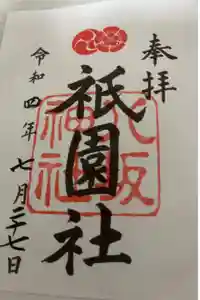 奉拝
八坂
神社
祇園社
令和四年七月二十七日